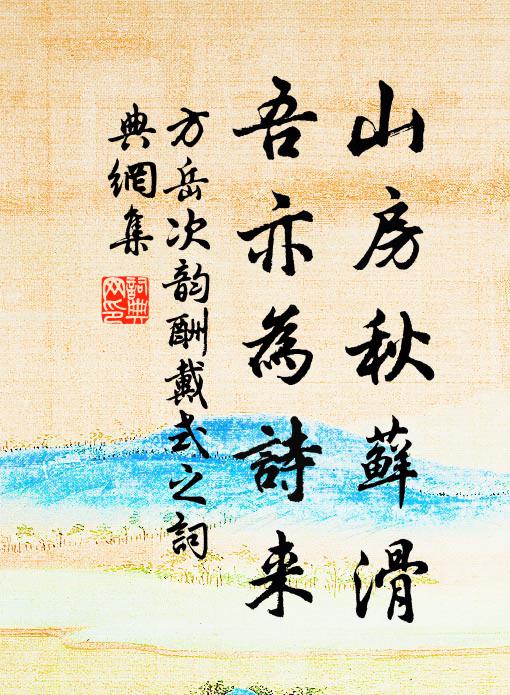 山房秋蘚滑
吾亦為詩来
方岳次韵酬戴式之詞
典網集
詞典
网印